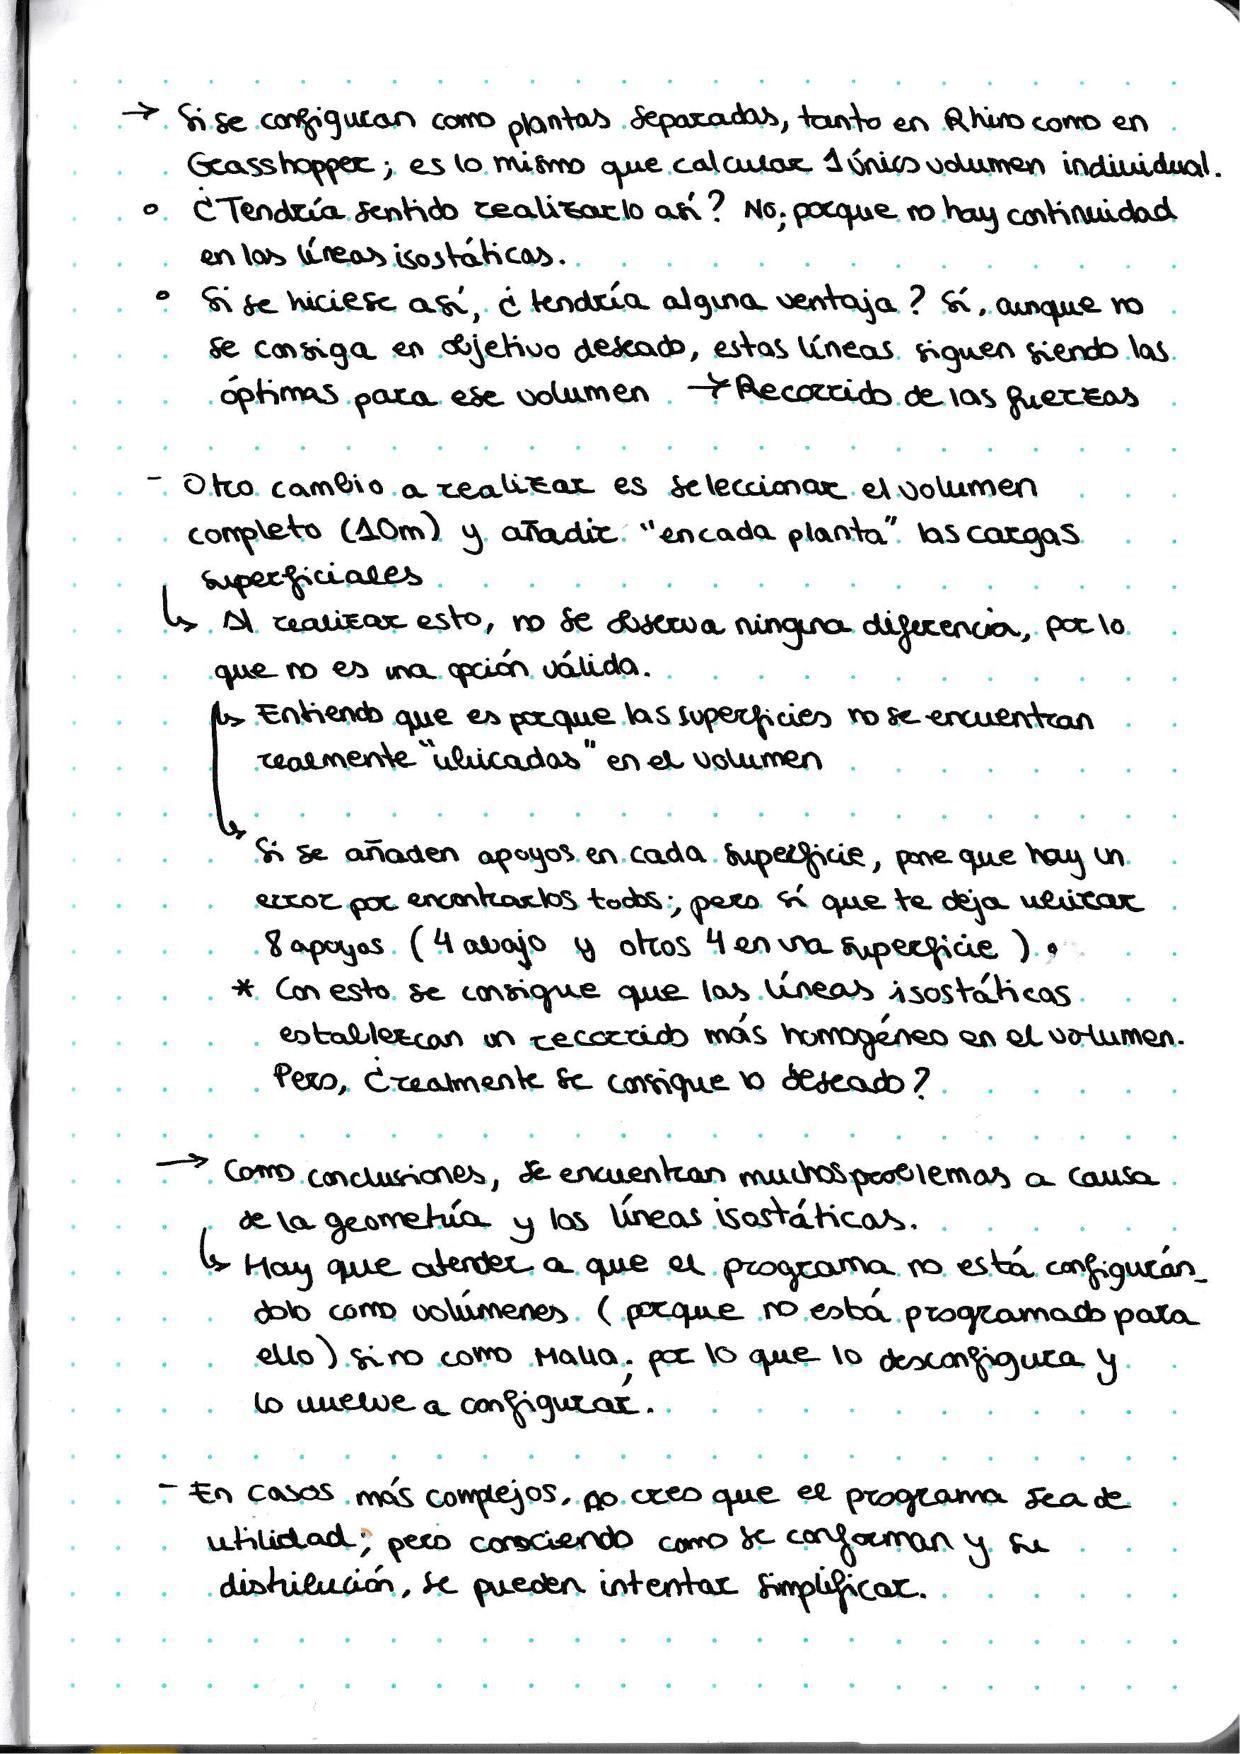 → Si se configuran como plantas separadas, tanto en Rhino como en
Grasshopper; es lo mismo que calcular 1 único volumen individual.
o ¿Tendría sentido realizarlo así? No; porque no hay continuidad
en las líneas isostáticas.
o Si se hiciese así, ¿tendría alguna ventaja? Sí, aunque no
se consiga en objetivo deseado, estas líneas siguen siendo las
óptimas para ese volumen → Recorrido de las fuerzas
- Otro cambio a realizar es seleccionar el volumen
completo (10m) y añadir "en cada planta" las cargas
superficiales
↳ Al realizar esto, no se observa ninguna diferencia, por lo
que no es una opción válida.
↳ Entiendo que es porque las superficies no se encuentran
realmente "ubicadas" en el volumen
↳ Si se añaden apoyos en cada superficie, pone que hay un
error por encontrarlos todos; pero sí que te deja ubicar
8 apoyos (4 abajo y otros 4 en una superficie).
* Con esto se consigue que las líneas isostáticas
establezcan un recorrido más homogéneo en el volumen.
Pero, ¿realmente se consigue lo deseado?
→ Como conclusiones, se encuentran muchos problemas a causa
de la geometría y las líneas isostáticas.
↳ Hay que atender a que el programa no está configurán_
dolo como volúmenes (porque no está programado para
ello) sino como Malla; por lo que lo desconfigura y
lo vuelve a configurar.
- En casos más complejos, no creo que el programa sea de
utilidad; pero conociendo como se conforman y su
distribución, se pueden intentar simplificar.